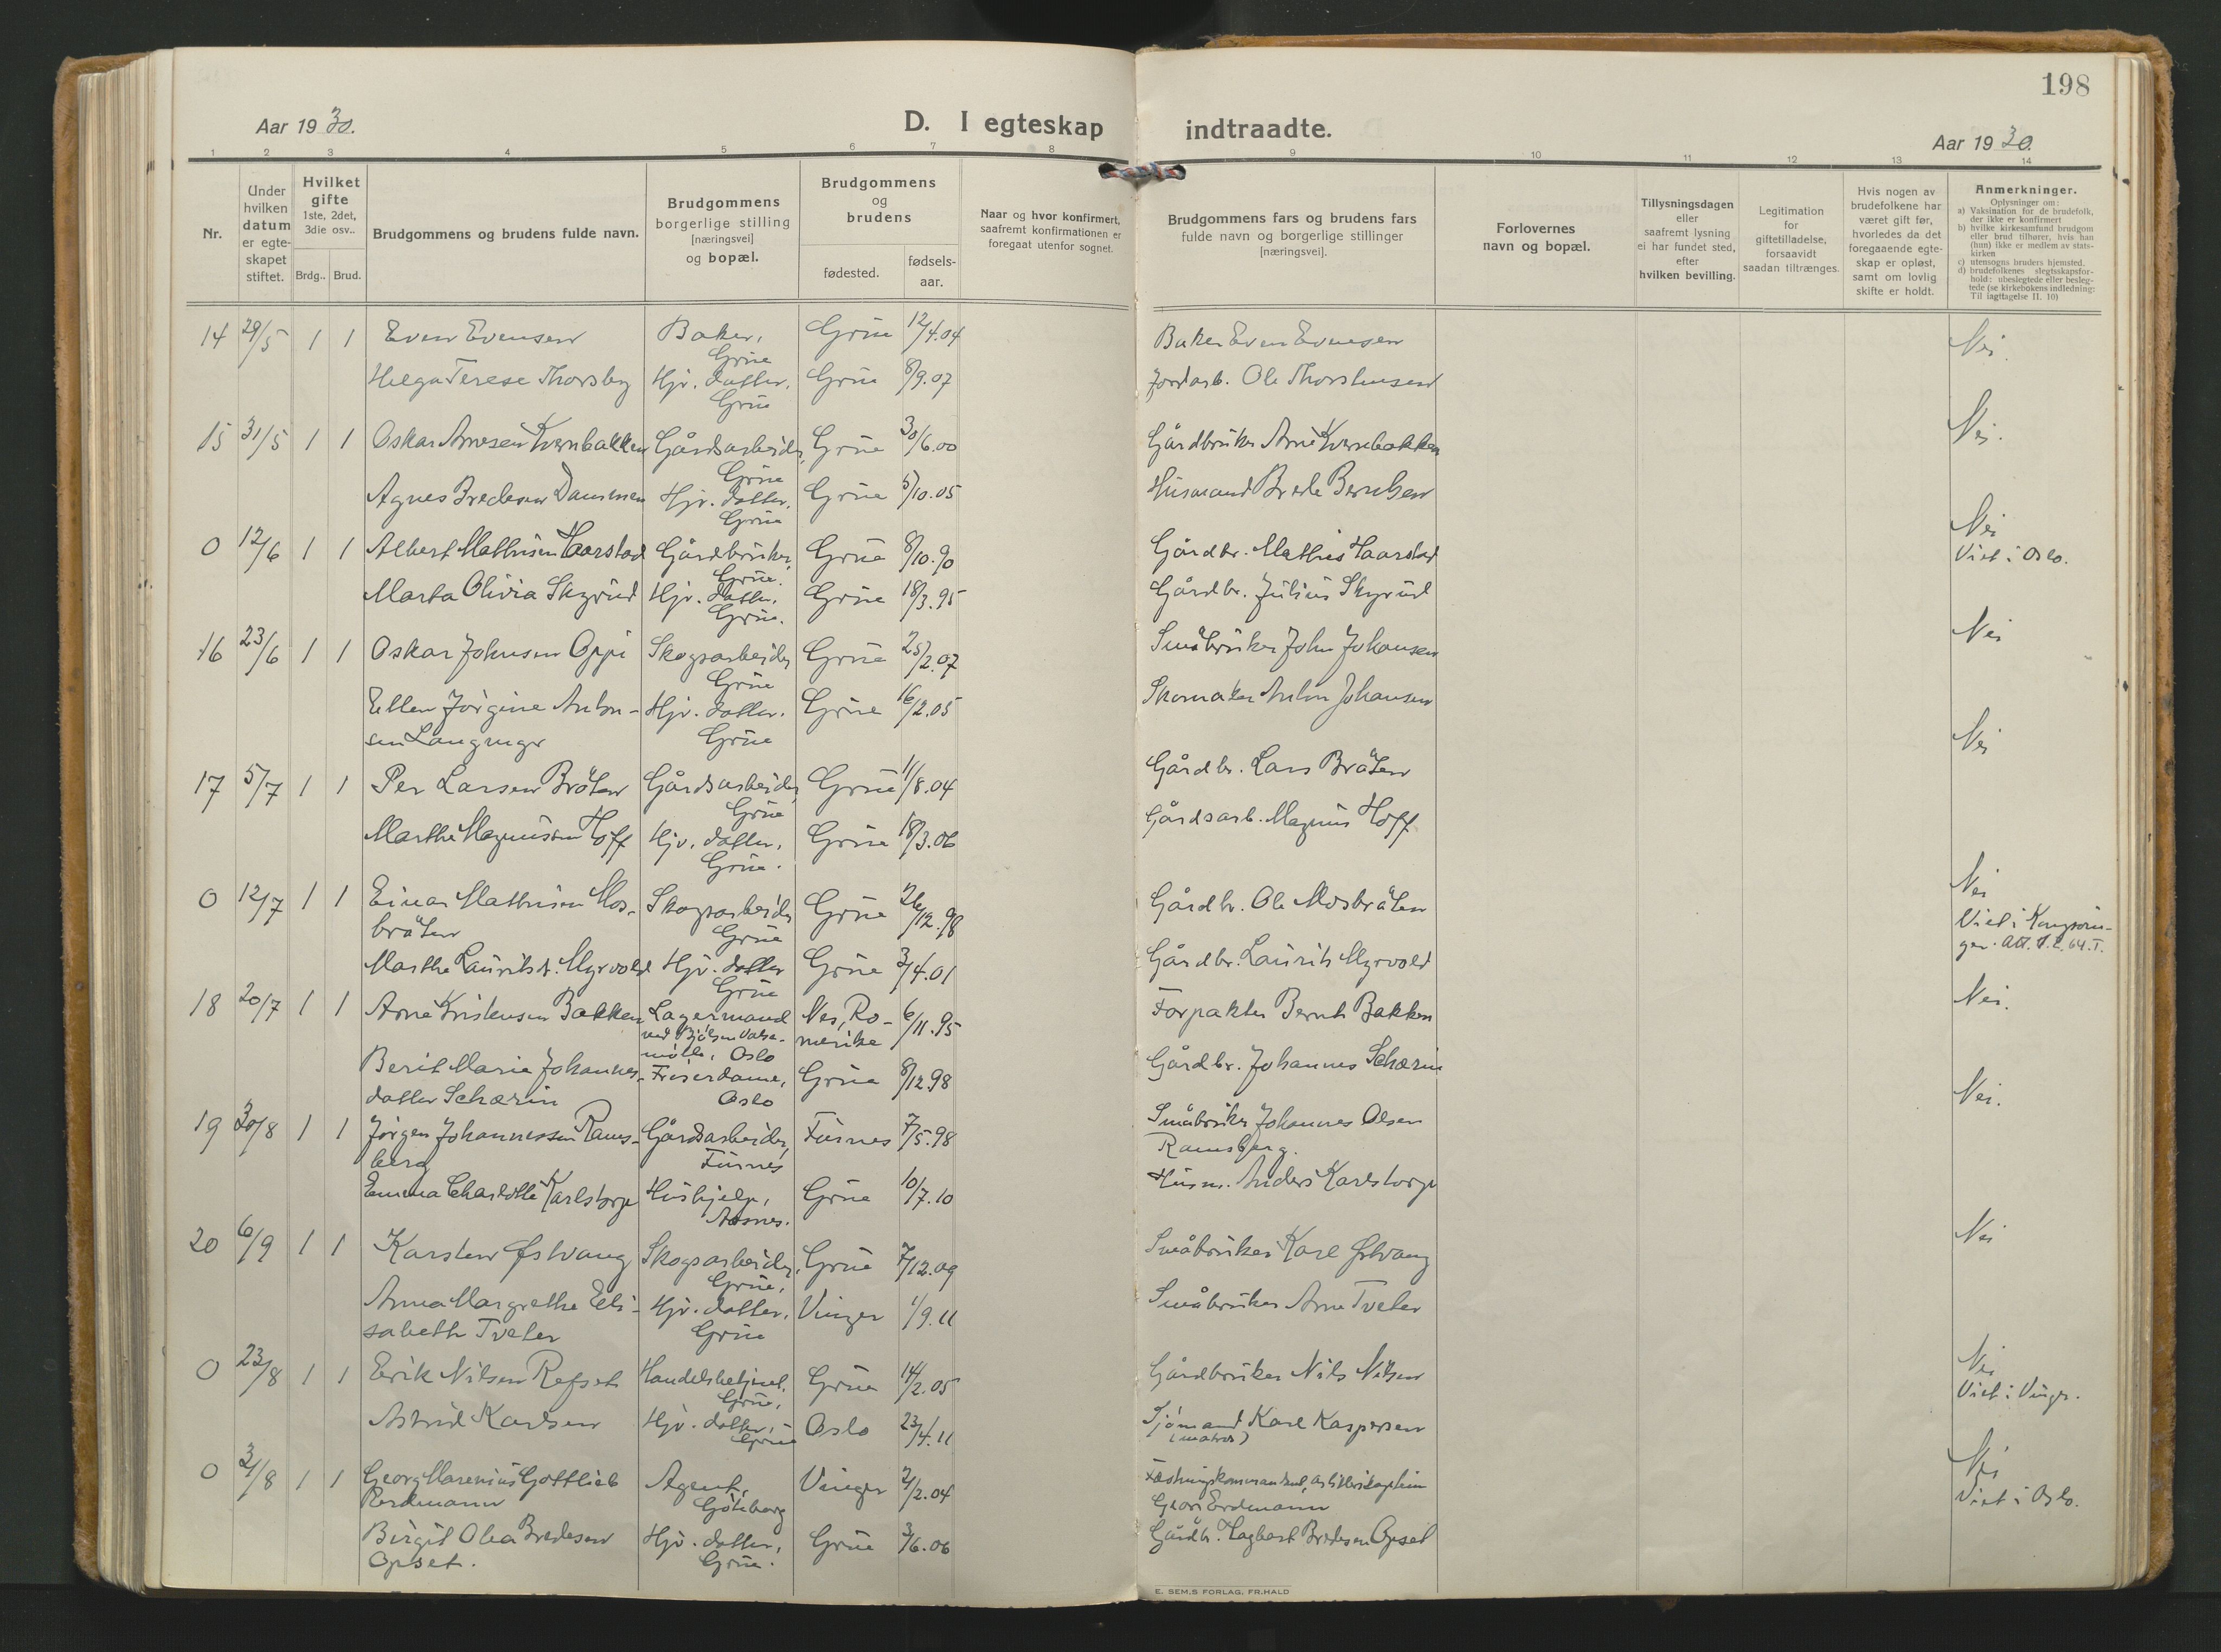 198
Aar 1930.
D. I egteskap indtraadte.
Aar 1930.
1 2 3 4 5 6 7 8 9 10 11 12 13 14
Nr.
Under hvilken datum er egteskapet stiftet.
Hvilket gifte
1ste, 2det, 3die osv..
Brdg.. Brud.
Brudgommens og brudens fulde navn.
Brudgommens borgerlige stilling [næringsvei] og bopæl.
Brudgommens og brudens
fødested.
fødsels-aar.
Naar og hvor konfirmert, saafremt konfirmationen er foregaat utenfor sognet.
Brudgommens fars og brudens fars fulde navn og borgerlige stillinger [næringsvei].
Forlovernes navn og bopæl.
Tillysningsdagen eller saafremt lysning ei har fundet sted, efter hvilken bevilling.
Legitimation for giftetilladelse, forsaavidt saadan tiltrænges.
Hvis nogen av brudefolkene har været gift før, hvorledes da det foregaaende egteskap er opløst, samt om lovlig skifte er holdt.
Anmerkninger.
Oplysninger om:
a) Vaksination for de brudefolk, der ikke er konfirmert
b) hvilke kirkesamfund brudgom eller brud tilhører, hvis han (hun) ikke er medlem av statskirken
c) utensogns bruders hjemsted.
d) brudefolkenes slegtsskapsforhold: ubeslegtede eller beslegtede (se kirkebokens indledning: Til iagttagelse II. 10)
14 29/5 1 1 Even Evensen Baker, Grue Grue 12/4.04 Baker Even Evensen Nei.
Helga Terese Thorsby Hjv. datter, Grue Grue 8/9.07 Jordarb. Ole Thorstensen
15 31/5 1 1 Oskar Arnesen Kvernbakken Gårdsarbeider, Grue Grue 30/6.00 Gårdbruker Arne Kvernbakken Nei.
Agnes Bredesen Dammen Hjv. datter, Grue Grue 5/10.05 Husmand Brede Berntsen
0 12/6 1 1 Albert Mathisen Haarstad Gårdbruker, Grue. Grue 8/10.90 Gårdbr. Mathis Haarstad Nei
Viet i Oslo.
Marta Olivia Skyrud Hjv. datter, Grue. Grue 18/3.95 Gårdbr. Julius Skyrud
16 23/6 1 1 Oskar Johnsen Oppi Skogsarbeider, Grue Grue 25/2.07 Småbruker John Johansen Nei
Ellen Jørgine Antonsen Langnger Hjv. datter. Grue Grue 16/2.05 Skomaker Anton Johansen
17 5/7 1 1 Per Larsen Bråten Gårdsarbeider, Grue Grue 11/8.04 Gårdbr. Lars Bråten Nei
Marthe Magnussen Hoff Hjv. datter, Grue. Grue 18/3.06 Gårdsarb. Magnus Hoff
0 12/7 1 1 Einar Mathisen Mosbråten Skogsarbeider Grue Grue 26/12.98 Gårdbr. Ole Mosbråten Nei
Viet i Kongsvinger.
Marthe Laurits d. Myrvold Hjv. datter Grue Grue 3/4.01 Gårdbr. Laurits Myrvold
18 20/7 1 1 Arne Kristensen Bakken Lagermand ved Bjølsen Valsemølle, Oslo Nes, Romerike 6/11.95 Forpakter Bernt Bakken Nei.
Berit Marie Johannesdatter Schærin Friserdame, Oslo Grue 8/12 98 Gårdbr. Johannes Schærin
19 30/8 1 1 Jørgen Johannessen Ramsberg Gårdsarbeider, Furnes Furnes 7/5.98 Småbruker Johannes Olsen Ramsberg. Nei.
Emma Charlotte Karlstorp Hushjelp, Åsnes. Grue 10/7.10 Husm. Anders Karlstorp
20 6/9 1 1 Karsten Østvang Skogsarbeider, Grue, Grue 7/12.09 Småbruker Karl Østvang Nei
Anna Margrethe Elisabeth Tveter Hjv. datter, Grue Vinger 1/9.11 Småbruker Arne Tveter
0 23/8 1 1 Erik Nilsen Refset Handelsbetjent, Grue, Grue 14/2.05 Gårdbruker Nils Nilsen Nei
Viet i Vinger.
Astrid Karlsen Hjv. datter, Grue Oslo 23/4.11 Sjømand Karl Kaspersen
(matros)
0 31/8 1 1 Georg Marenius Gottlieb Erdmann Agent, Göteborg Vinger 2/2.04 Fæstningskommandant, artillerikaptein Georg Erdmann Nei
Viet i Oslo.
Birgit Olea Bredesen Opset. Hjv. datter, Grue. Grue 3/6.06 Gårdbr. Dagbart Bredesen Opset
E. SEM,S FORLAG, FR.HALD